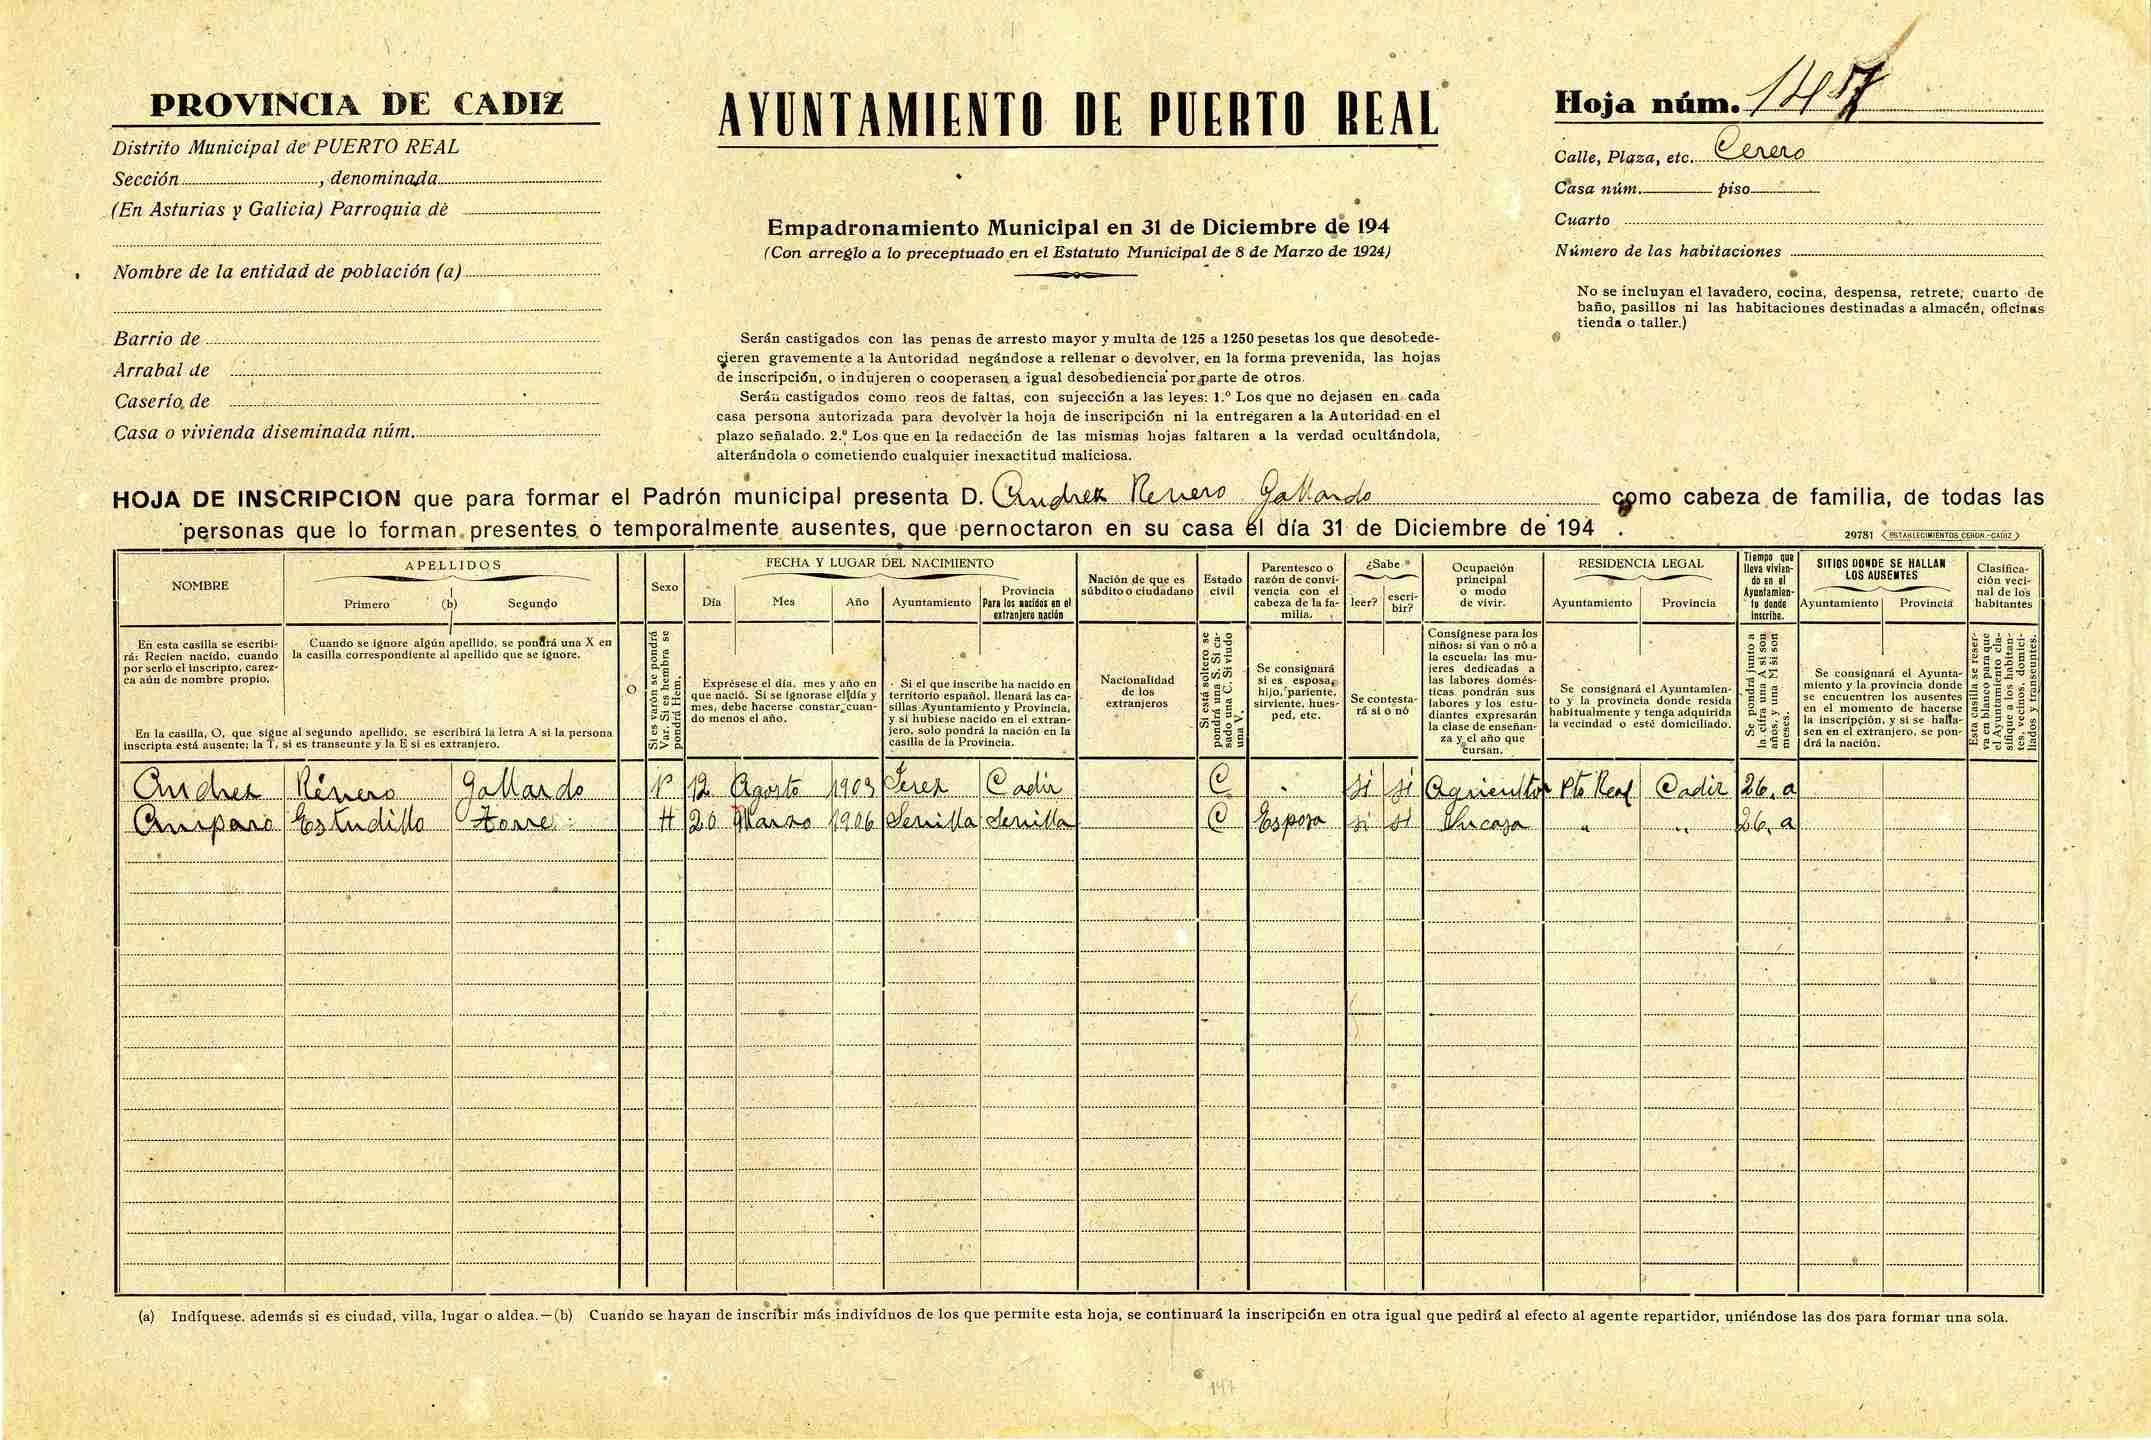 PROVINCIA DE CADIZ
Distrito Municipal de PUERTO REAL
Sección , denominada
(En Asturias y Galicia) Parroquia de
Nombre de la entidad de población (a)
Barrio de
Arrabal de
Caserío de
Casa o vivienda diseminada núm.
AYUNTAMIENTO DE PUERTO REAL
Empadronamiento Municipal en 31 de Diciembre de 194
(Con arreglo a lo preceptuado en el Estatuto Municipal de 8 de Marzo de 1924)
Serán castigados con las penas de arresto mayor y multa de 125 a 1250 pesetas los que desobede-
cieren gravemente a la Autoridad negándose a rellenar o devolver, en la forma prevenida, las hojas
de inscripción, o indujeren o cooperasen a igual desobediencia por parte de otros.
Serán castigados como reos de faltas, con sujección a las leyes: 1.º Los que no dejasen en cada
casa persona autorizada para devolver la hoja de inscripción ni la entregaren a la Autoridad en el
plazo señalado. 2.º Los que en la redacción de las mismas hojas faltaren a la verdad ocultándola,
alterándola o cometiendo cualquier inexactitud maliciosa.
Hoja núm. 147
Calle, Plaza, etc. Cerero
Casa núm. piso
Cuarto
Número de las habitaciones
No se incluyan el lavadero, cocina, despensa, retrete, cuarto de
baño, pasillos ni las habitaciones destinadas a almacén, oficinas
tienda o taller.)
HOJA DE INSCRIPCION que para formar el Padrón municipal presenta D. Andrez Renero Gallardo como cabeza de familia, de todas las
personas que lo forman presentes o temporalmente ausentes, que pernoctaron en su casa el día 31 de Diciembre de 194 .
29781 ESTABLECIMIENTOS CERON.-CADIZ
NOMBRE
APELLIDOS
Primero (b) Segundo
Sexo
FECHA Y LUGAR DEL NACIMIENTO
Día Mes Año Ayuntamiento
Provincia
Para los nacidos en el
extranjero nación
Nación de que es
súbdito o ciudadano
Estado
civil
Parentesco o
razón de convi-
vencia con el
cabeza de la fa-
milia.
¿Sabe
leer? escri-
bir?
Ocupación
principal
o modo
de vivir.
RESIDENCIA LEGAL
Ayuntamiento Provincia
Tiempo que
lleva vivien-
do en el
Ayuntamien-
to donde
inscribe.
SITIOS DONDE SE HALLAN
LOS AUSENTES
Ayuntamiento Provincia
Clasifica-
ción veci-
nal de los
habitantes
En esta casilla se escribi-
rá: Recien nacido, cuando
por serlo el inscripto, carez-
ca aún de nombre propio.
Cuando se ignore algún apellido, se pondrá una X en
la casilla correspondiente al apellido que se ignore.
En la casilla, O, que sigue al segundo apellido, se escribirá la letra A si la persona
inscripta está ausente; la T, si es transeunte y la E si es extranjero.
O
Si es varón se pondrá
Var. Si es hembra se
pondrá Hem.
Exprésese el día, mes y año en
que nació. Si se ignorase el día y
mes, debe hacerse constar cuan-
do menos el año.
Si el que inscribe ha nacido en
territorio español, llenará las ca-
sillas Ayuntamiento y Provincia,
y si hubiese nacido en el extran-
jero, solo pondrá la nación en la
casilla de la Provincia.
Nacionalidad
de los
extranjeros
Si está soltero se
pondrá una S. Si ca-
sado una C. Si viudo
una V.
Se consignará
si es esposa,
hijo, pariente,
sirviente, hues-
ped, etc.
Se contesta-
rá sí o nó
Consígnese para los
niños: si van o nó a
la escuela: las mu-
jeres dedicadas a
las labores domés-
ticas pondrán sus
labores y los estu-
diantes expresarán
la clase de enseñan-
za y el año que
cursan.
Se consignará el Ayuntamien-
to y la provincia donde resida
habitualmente y tenga adquirida
la vecindad o esté domiciliado.
Se pondrá junto a
la cifra una A si son
años, y una M si son
meses.
Se consignará el Ayunta-
miento y la provincia donde
se encuentren los ausentes
en el momento de hacerse
la inscripción, y si se halla-
sen en el extranjero, se pon-
drá la nación.
Esta casilla se reser-
va en blanco para que
el Ayuntamiento cla-
sifique a los habitan-
tes, vecinos, domici-
liados y transeuntes.
Andrez Rénero Gallardo V 12 Agosto 1903 Jerez Cadiz C - si si Agricultor Pto Real Cadiz 26. a
Amparo Estudillo Torre H 20 Marzo 1906 Sevilla Sevilla C Esposa si si Su casa " " 26. a
(a) Indíquese. además si es ciudad, villa, lugar o aldea.—(b) Cuando se hayan de inscribir más individuos de los que permite esta hoja, se continuará la inscripción en otra igual que pedirá al efecto al agente repartidor, uniéndose las dos para formar una sola.
147